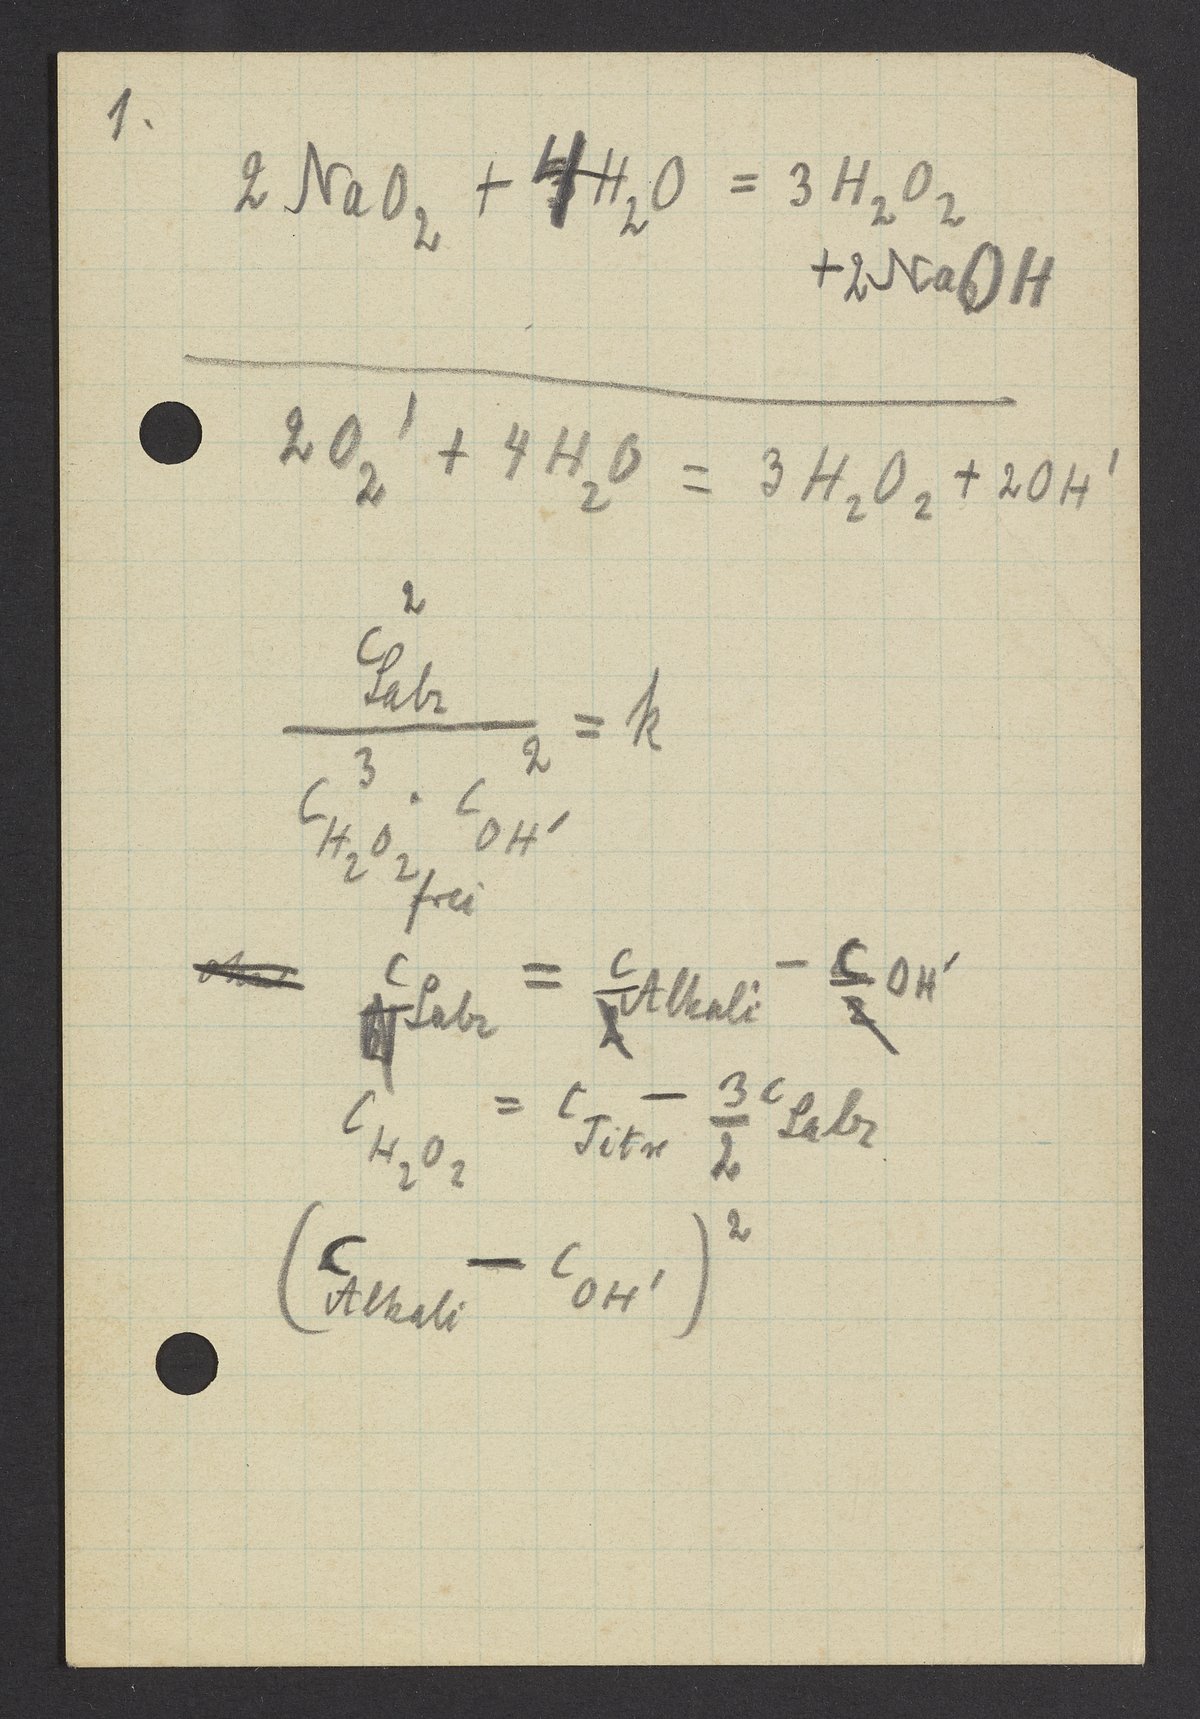 1.
2 NaO₂ + 4 H₂O = 3 H₂O₂
+ 2 NaOH
2 O₂' + 4 H₂O = 3 H₂O₂ + 2 OH'
c²
Salz
= k
c³ H₂O₂ · c² OH'
frei
c Salz = c Alkali - c OH'
c H₂O₂ = c Titr - 3/2 c Salz
(c Alkali - c OH')²